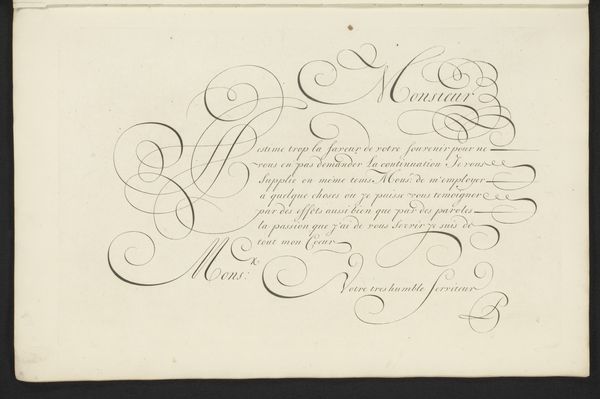 Monsieur
J'estime trop la faveur de votre souvenir pour ne
vous en pas demander La continuation. Je vous
Supplie en même tems Mons.r de m'employer
a quelque choses ou je puisse vous temoigner
par des effets aussi bien que par des paroles
la passion que j'ai de vous servir je suis de
tout mon Coeur
Mons.r
Votre tres humble Serviteur